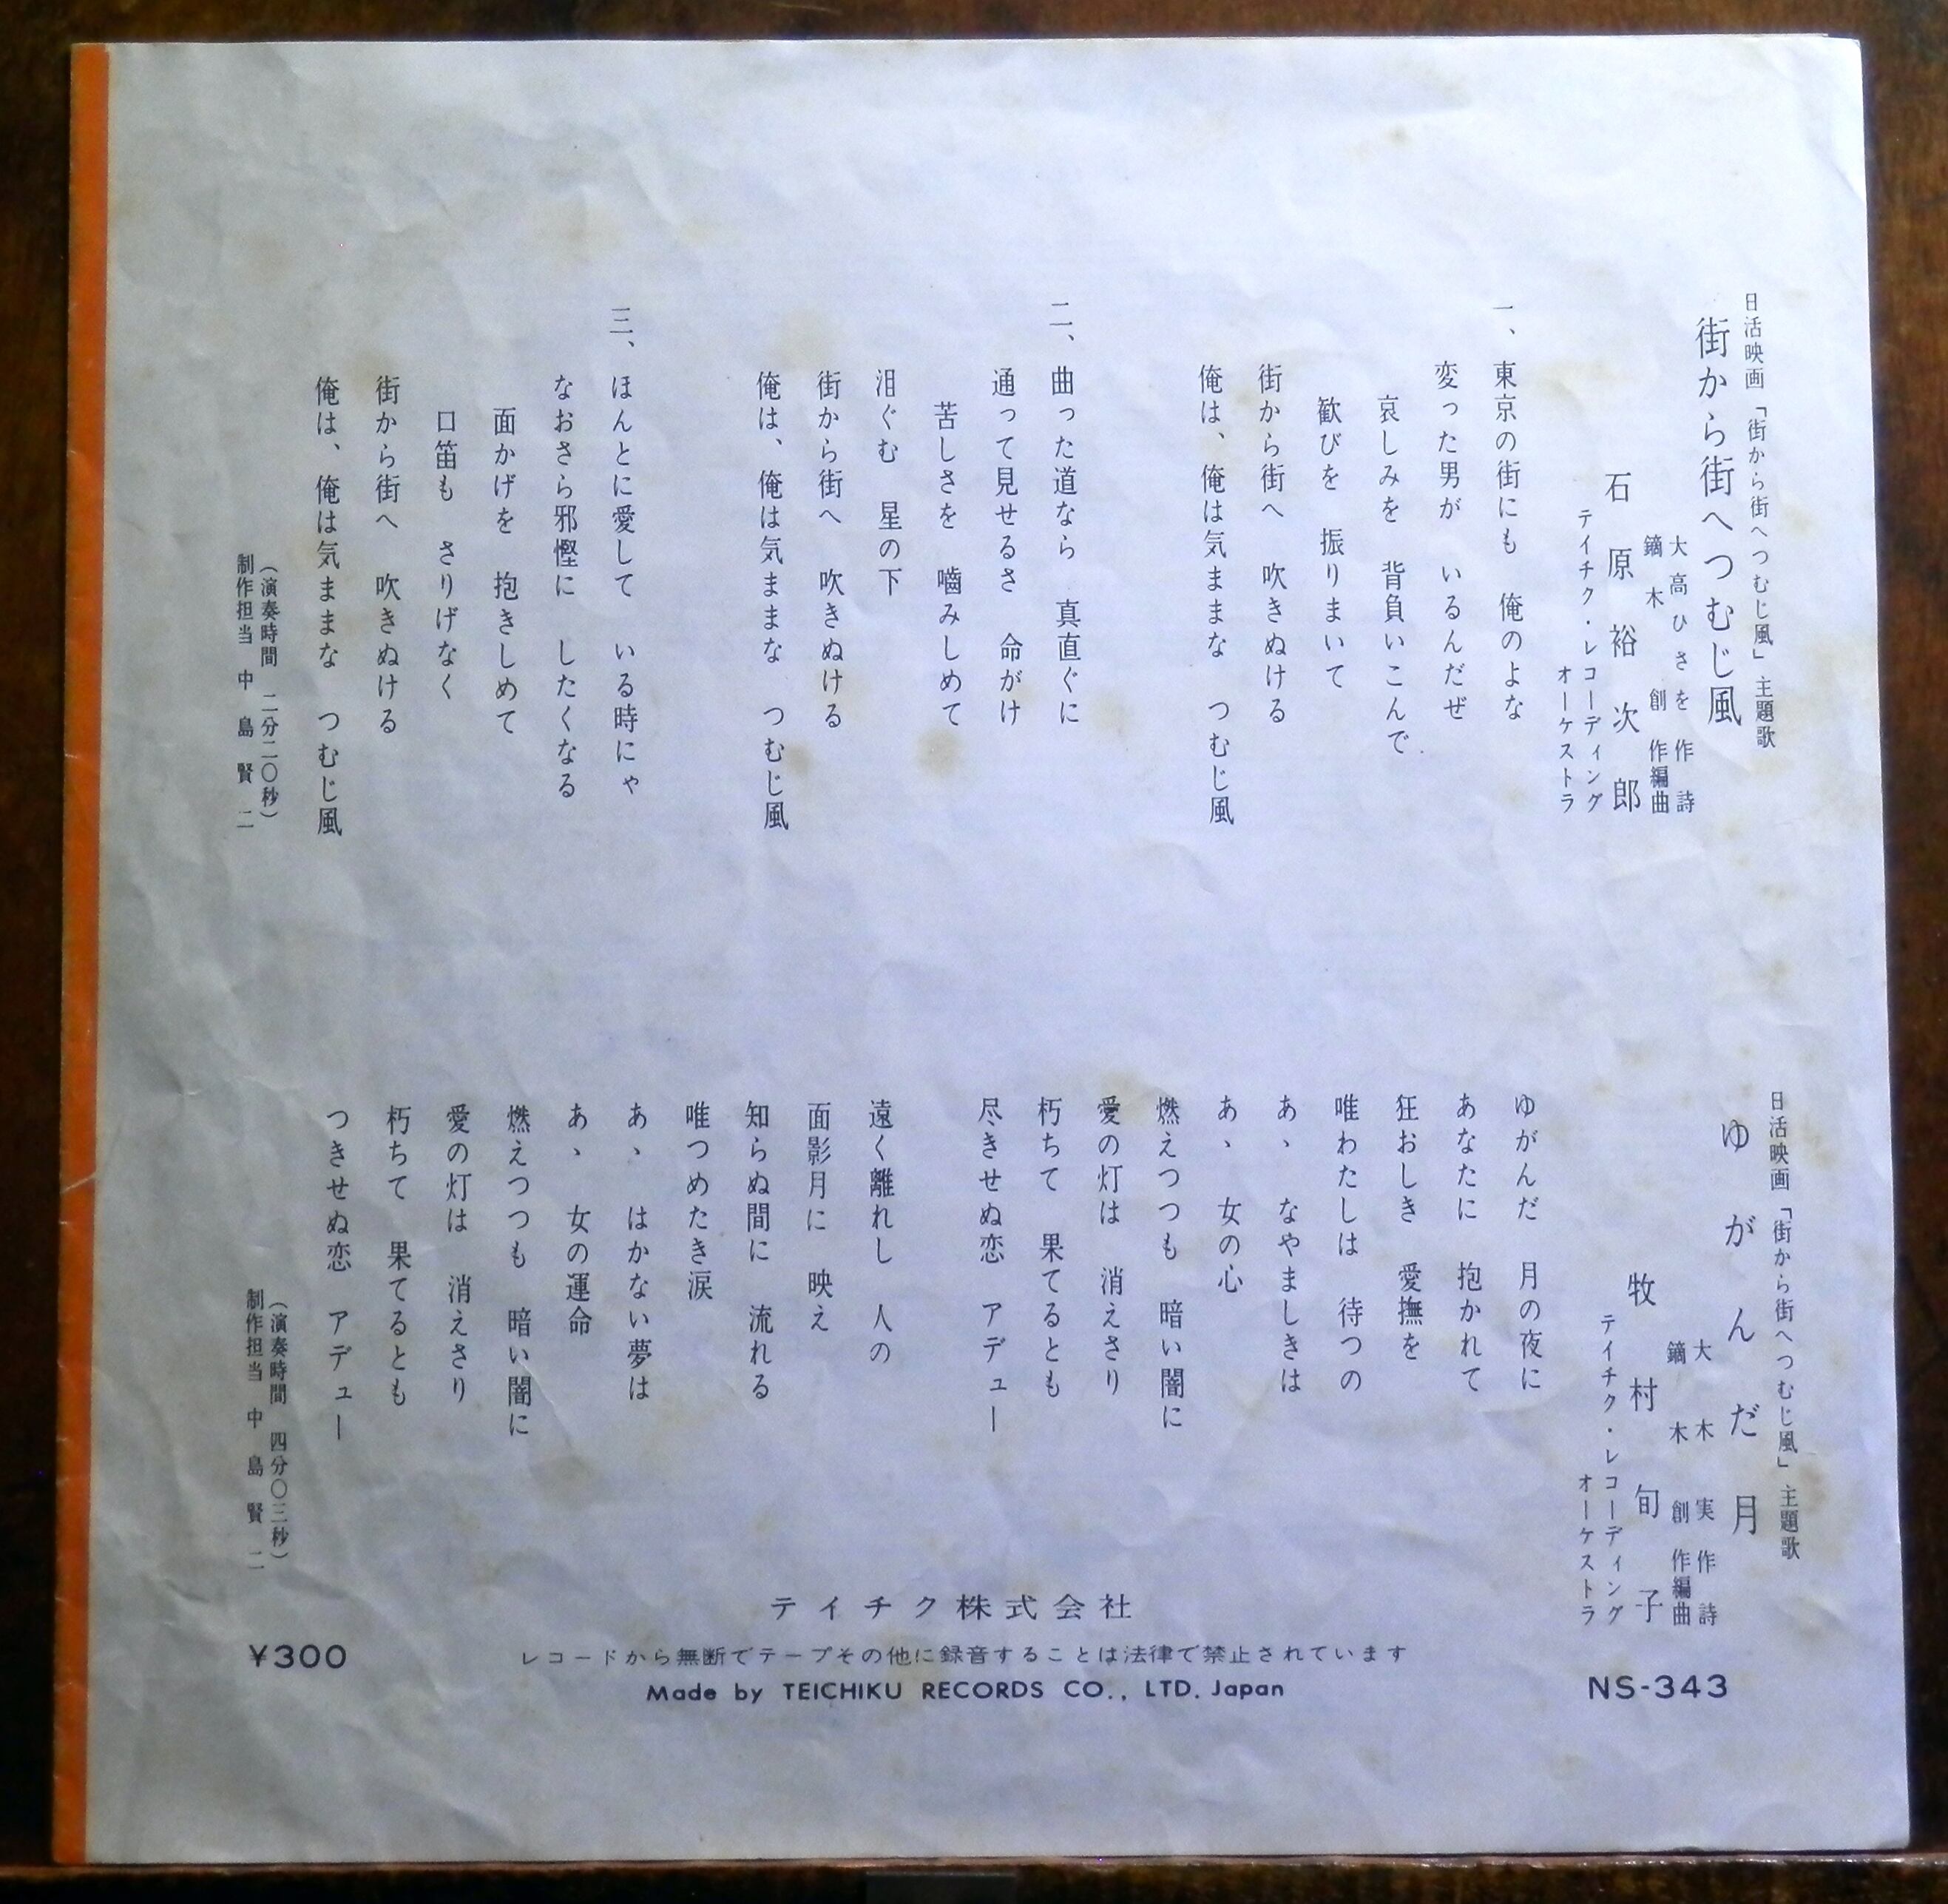 日活映画「街から街へつむじ風」主題歌
街から街へつむじ風
大高ひさを 作詩
鏑木 創 作編曲
石原裕次郎
テイチク・レコーディング
オーケストラ
一、東京の街にも 俺のよな
変った男が いるんだぜ
哀しみを 背負いこんで
歓びを 振りまいて
街から街へ 吹きぬける
俺は、俺は気ままな つむじ風
二、曲った道なら 真直ぐに
通って見せるさ 命がけ
苦しさを 嚙みしめて
泪ぐむ 星の下
街から街へ 吹きぬける
俺は、俺は気ままな つむじ風
三、ほんとに愛して いる時にゃ
なおさら邪慳に したくなる
面かげを 抱きしめて
口笛も さりげなく
街から街へ 吹きぬける
俺は、俺は気ままな つむじ風
(演奏時間 二分二〇秒)
制作担当 中島賢二
日活映画「街から街へつむじ風」主題歌
ゆがんだ月
大木 実 作詩
鏑木 創 作編曲
牧村旬子
テイチク・レコーディング
オーケストラ
ゆがんだ 月の夜に
あなたに 抱かれて
狂おしき 愛撫を
唯わたしは 待つの
あゝ なやましきは
あゝ 女の心
燃えつつも 暗い闇に
愛の灯は 消えさり
朽ちて 果てるとも
尽きせぬ恋 アデュー
遠く離れし 人の
面影月に 映え
知らぬ間に 流れる
唯つめたき涙
あゝ はかない夢は
あゝ 女の運命
燃えつつも 暗い闇に
愛の灯は 消えさり
朽ちて 果てるとも
つきせぬ恋 アデュー
(演奏時間 四分〇三秒)
制作担当 中島賢二
テイチク株式会社
レコードから無断でテープその他に録音することは法律で禁止されています
Made by TEICHIKU RECORDS CO., LTD. Japan
¥300
NS-343